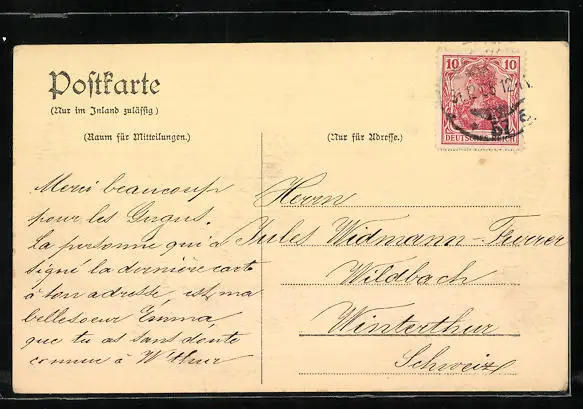 Postkarte
(Nur im Inland zulässig)
(Raum für Mitteilungen.)
(Nur für Adresse.)
10 10
DEUTSCHES REICH
Merci beaucoup
pour les
La personne qui a
signé la dernière carte
à ton adresse, est, ma
bellesoeur Emma,
que tu as sans doute
connue à W'thur
Herrn
Jules Widmann-Furrer
Wildbach
Winterthur
Schweiz